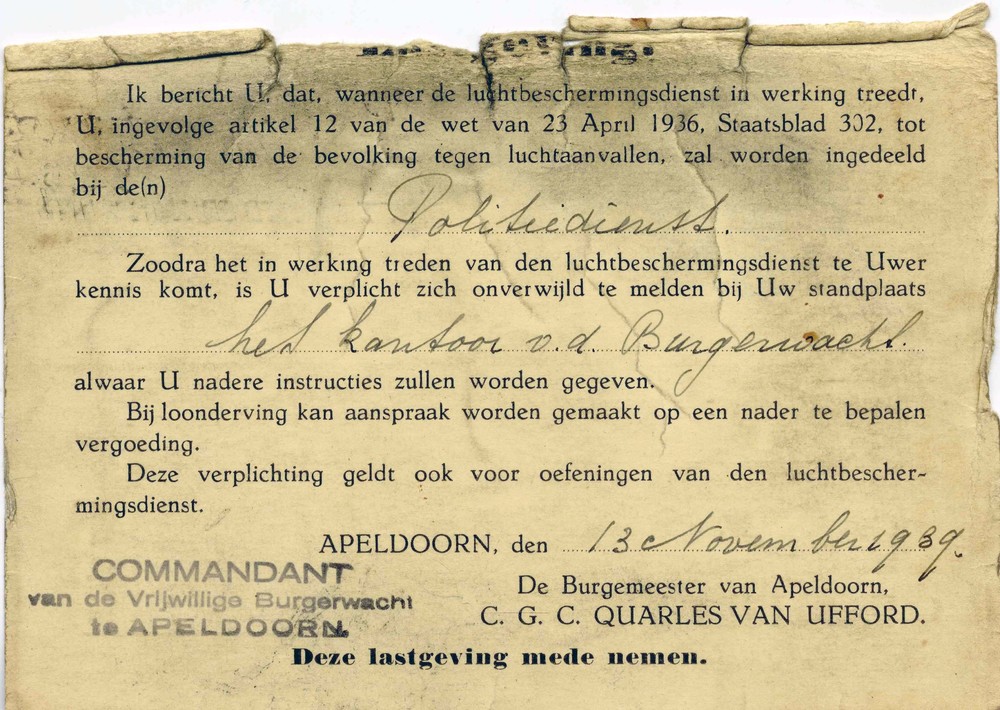 Ik bericht U, dat, wanneer de luchtbeschermingsdienst in werking treedt,
U, ingevolge artikel 12 van de wet van 23 April 1936, Staatsblad 302, tot
bescherming van de bevolking tegen luchtaanvallen, zal worden ingedeeld
bij de(n)
Politiedienst.
Zoodra het in werking treden van den luchtbeschermingsdienst te Uwer
kennis komt, is U verplicht zich onverwijld te melden bij Uw standplaats
het kantoor v.d. Burgerwacht.
alwaar U nadere instructies zullen worden gegeven.
Bij loonderving kan aanspraak worden gemaakt op een nader te bepalen
vergoeding.
Deze verplichting geldt ook voor oefeningen van den luchtbescher-
mingsdienst.
APELDOORN, den 13 November 1939.
De Burgemeester van Apeldoorn,
C. G. C. QUARLES VAN UFFORD.
COMMANDANT
van de Vrijwillige Burgerwacht
te APELDOORN.
Deze lastgeving mede nemen.